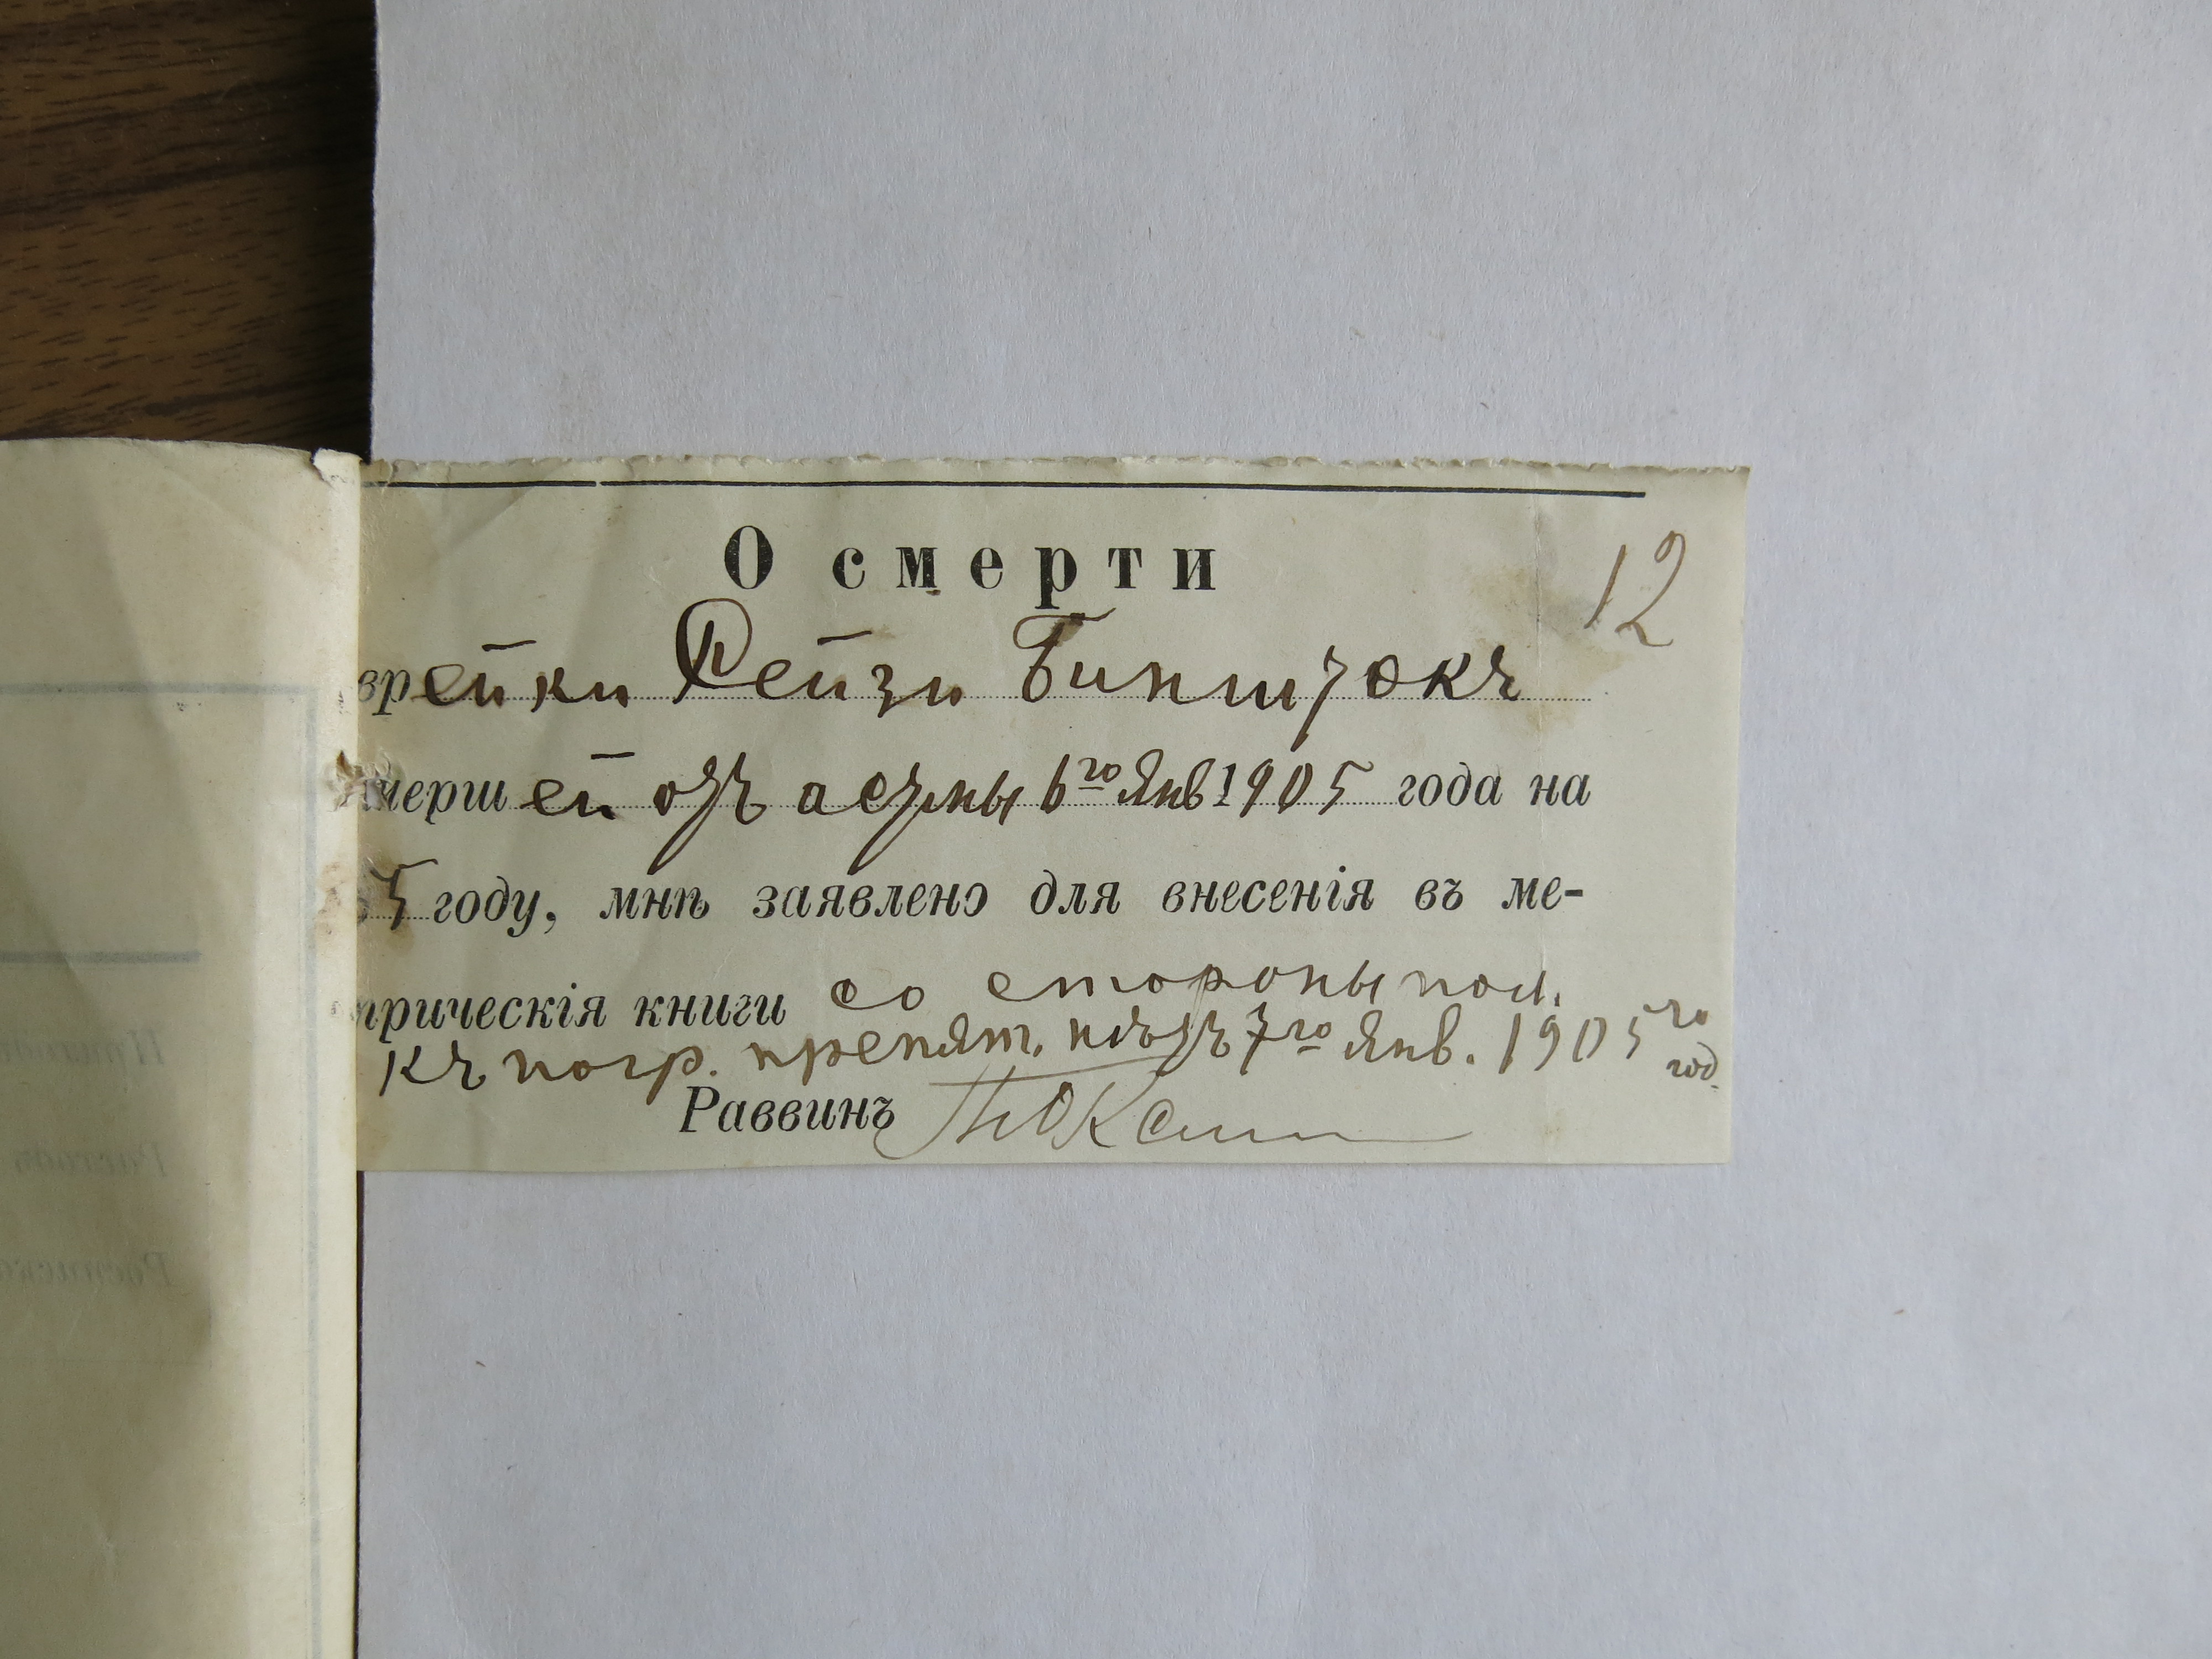 О смерти
12
врейки Рейзи Бинштокъ
мершей отъ астмы 6го Янв 1905 года на
5 году, мнѣ заявлено для внесенія въ ме-
трическія книги со стороны пол.
къ погр. препят. нѣтъ 7го Янв. 1905 го год.
Раввинъ